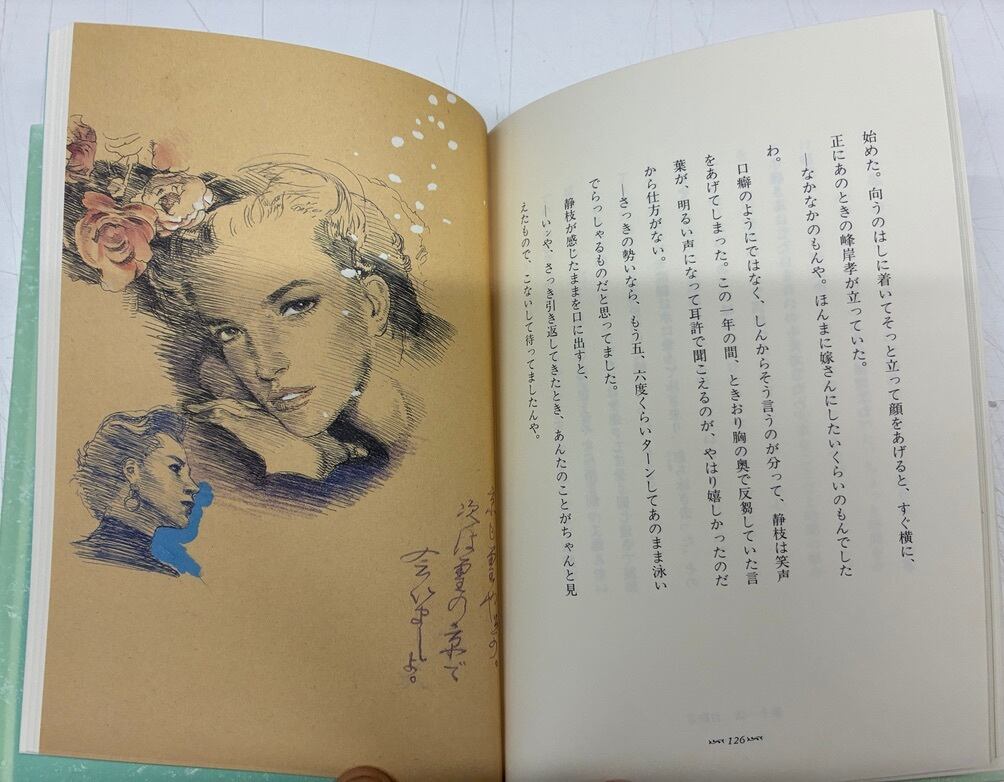 始めた。向うのはしに着いてそっと立って顔をあげると、すぐ横に、
正にあのときの峰岸孝が立っていた。
―なかなかのもんや。ほんまに嫁さんにしたいくらいのもんでした
わ。
口癖のようにではなく、しんからそう言うのが分って、静枝は笑声
をあげてしまった。この一年の間、ときおり胸の奥で反芻していた言
葉が、明るい声になって耳許で聞こえるのが、やはり嬉しかったのだ
から仕方がない。
―さっきの勢いなら、もう五、六度くらいターンしてあのまま泳い
でらっしゃるものだと思ってました。
静枝が感じたままを口に出すと、
―いッや、さっき引き返してきたとき、あんたのことがちゃんと見
えたもので、こないして待ってましたんや。
126
次は の京で
会いましょ。